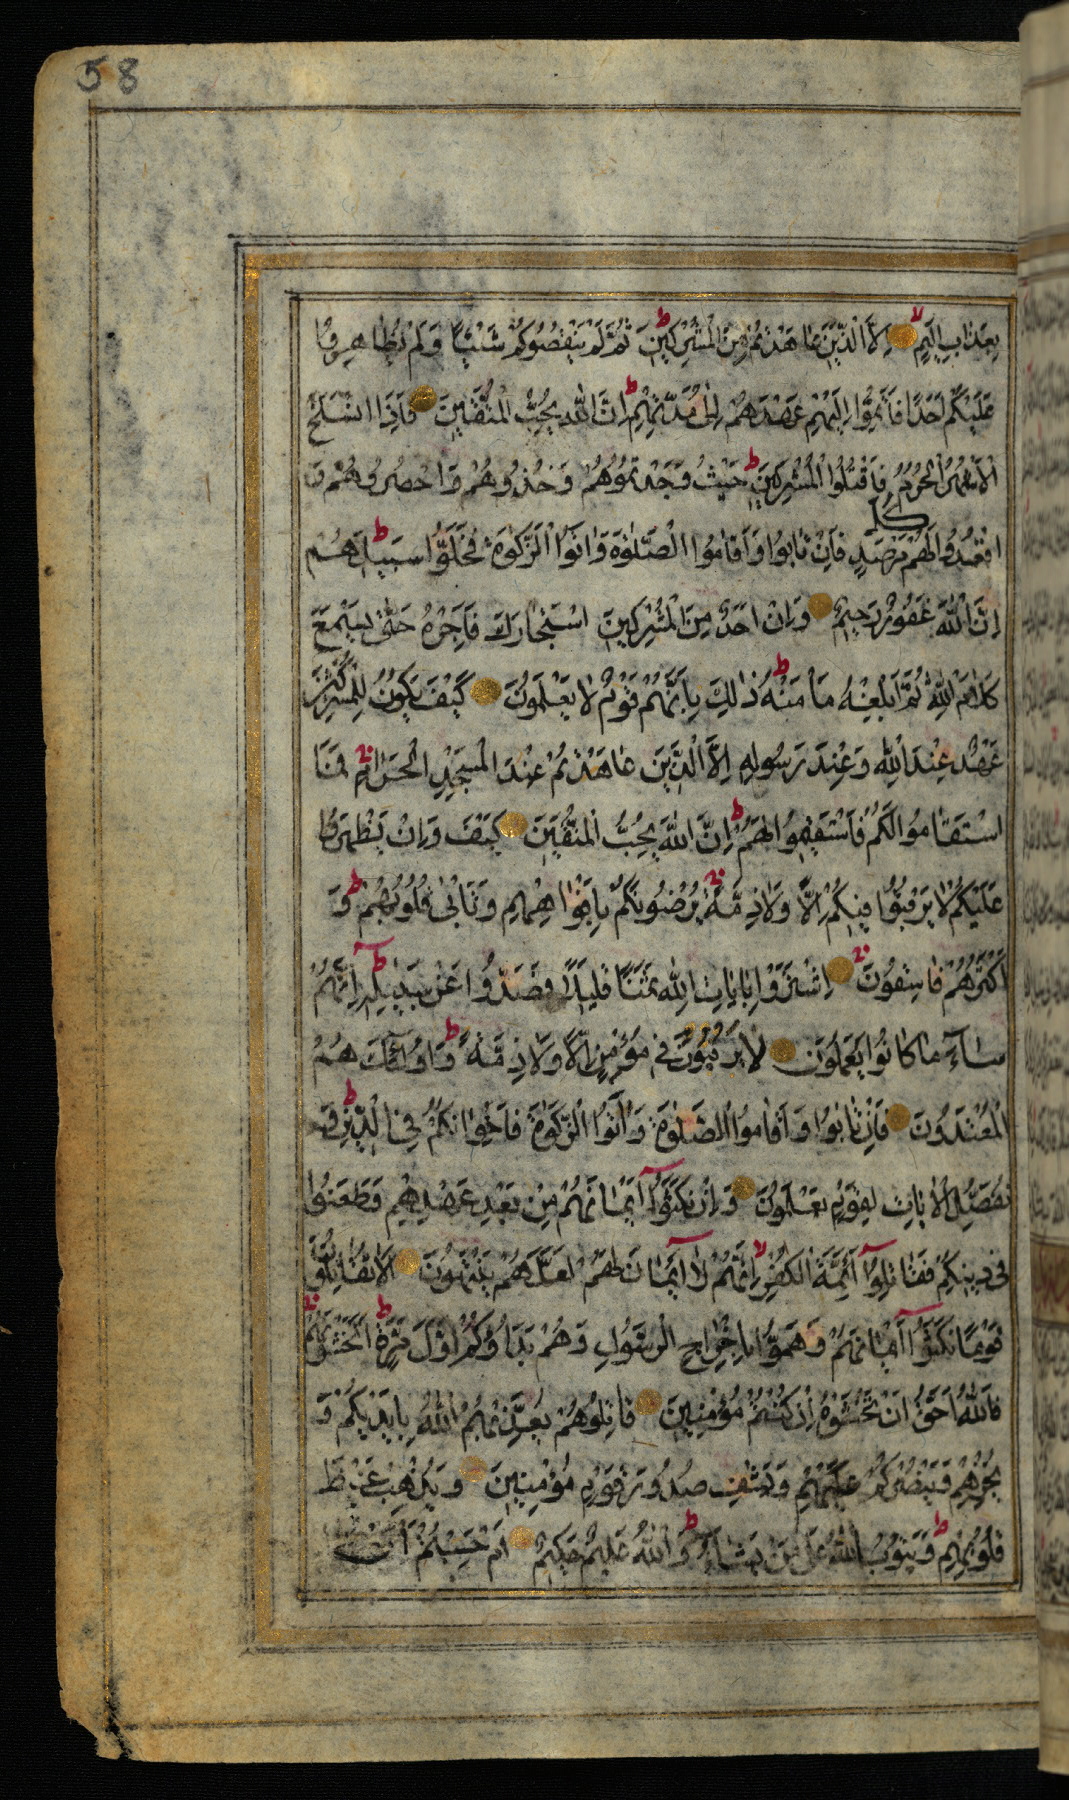 58
بِعَذَابٍ اَلِيْمٍ اِلَّا الَّذِيْنَ عَاهَدْتُمْ مِنَ الْمُشْرِكِيْنَ ثُمَّ لَمْ يَنْقُصُوْكُمْ شَيْئًا وَلَمْ يُظَاهِرُوْا
عَلَيْكُمْ اَحَدًا فَاَتِمُّوْا اِلَيْهِمْ عَهْدَهُمْ اِلٰى مُدَّتِهِمْ اِنَّ اللّٰهَ يُحِبُّ الْمُتَّقِيْنَ فَاِذَا انْسَلَخَ
الْاَشْهُرُ الْحُرُمُ فَاقْتُلُوا الْمُشْرِكِيْنَ حَيْثُ وَجَدْتُمُوْهُمْ وَخُذُوْهُمْ وَاحْصُرُوْهُمْ وَ
اقْعُدُوْا لَهُمْ كُلَّ مَرْصَدٍ فَاِنْ تَابُوْا وَاَقَامُوا الصَّلٰوةَ وَاٰتَوُا الزَّكٰوةَ فَخَلُّوْا سَبِيْلَهُمْ
اِنَّ اللّٰهَ غَفُوْرٌ رَحِيْمٌ وَاِنْ اَحَدٌ مِنَ الْمُشْرِكِيْنَ اسْتَجَارَكَ فَاَجِرْهُ حَتّٰى يَسْمَعَ
كَلَامَ اللّٰهِ ثُمَّ اَبْلِغْهُ مَاْمَنَهُ ذٰلِكَ بِاَنَّهُمْ قَوْمٌ لَا يَعْلَمُوْنَ كَيْفَ يَكُوْنُ لِلْمُشْرِكِيْنَ
عَهْدٌ عِنْدَ اللّٰهِ وَعِنْدَ رَسُوْلِهِ اِلَّا الَّذِيْنَ عَاهَدْتُمْ عِنْدَ الْمَسْجِدِ الْحَرَامِ فَمَا
اسْتَقَامُوْا لَكُمْ فَاسْتَقِيْمُوْا لَهُمْ اِنَّ اللّٰهَ يُحِبُّ الْمُتَّقِيْنَ كَيْفَ وَاِنْ يَظْهَرُوْا
عَلَيْكُمْ لَا يَرْقُبُوْا فِيْكُمْ اِلًّا وَلَا ذِمَّةً يُرْضُوْنَكُمْ بِاَفْوَاهِهِمْ وَتَاْبٰى قُلُوْبُهُمْ وَ
اَكْثَرُهُمْ فَاسِقُوْنَ اِشْتَرَوْا بِاٰيَاتِ اللّٰهِ ثَمَنًا قَلِيْلًا فَصَدُّوْا عَنْ سَبِيْلِهِ اِنَّهُمْ
سَاۤءَ مَا كَانُوْا يَعْمَلُوْنَ لَا يَرْقُبُوْنَ فِيْ مُؤْمِنٍ اِلًّا وَلَا ذِمَّةً وَاُولٰۤئِكَ هُمُ
الْمُعْتَدُوْنَ فَاِنْ تَابُوْا وَاَقَامُوا الصَّلٰوةَ وَاٰتَوُا الزَّكٰوةَ فَاِخْوَانُكُمْ فِي الدِّيْنِ وَ
نُفَصِّلُ الْاٰيَاتِ لِقَوْمٍ يَعْلَمُوْنَ وَاِنْ نَكَثُوْا اَيْمَانَهُمْ مِنْ بَعْدِ عَهْدِهِمْ وَطَعَنُوْا
فِيْ دِيْنِكُمْ فَقَاتِلُوْا اَئِمَّةَ الْكُفْرِ اِنَّهُمْ لَا اَيْمَانَ لَهُمْ لَعَلَّهُمْ يَنْتَهُوْنَ اَلَا تُقَاتِلُوْنَ
قَوْمًا نَكَثُوْا اَيْمَانَهُمْ وَهَمُّوْا بِاِخْرَاجِ الرَّسُوْلِ وَهُمْ بَدَءُوْكُمْ اَوَّلَ مَرَّةٍ اَتَخْشَوْنَهُمْ
فَاللّٰهُ اَحَقُّ اَنْ تَخْشَوْهُ اِنْ كُنْتُمْ مُؤْمِنِيْنَ قَاتِلُوْهُمْ يُعَذِّبْهُمُ اللّٰهُ بِاَيْدِيْكُمْ وَ
يُخْزِهِمْ وَيَنْصُرْكُمْ عَلَيْهِمْ وَيَشْفِ صُدُوْرَ قَوْمٍ مُؤْمِنِيْنَ وَيُذْهِبْ غَيْظَ
قُلُوْبِهِمْ وَيَتُوْبُ اللّٰهُ عَلٰى مَنْ يَشَاۤءُ وَاللّٰهُ عَلِيْمٌ حَكِيْمٌ اَمْ حَسِبْتُمْ اَنْ